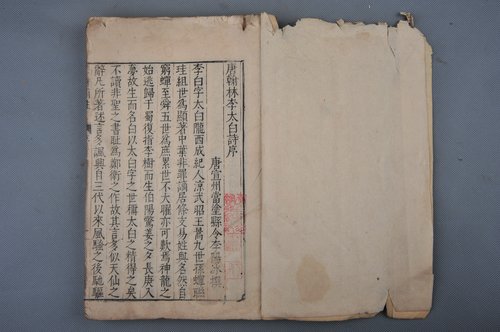 唐翰林李太白詩序
唐宣州當塗縣令李陽冰撰
李白字太白隴西成紀人涼武昭王暠九世孫蟬聯
珪組世爲顯著中葉非罪謫居條支易姓與名然自
窮蟬至舜五世爲庶累世不大曜亦可歎焉神龍之
始逃歸于蜀復指李樹而生伯陽驚姜之夕長庚入
夢故生而名白以太白字之世稱太白之精得之矣
不讀非聖之書恥爲鄭衛之作故其言多似天仙之
辭凡所著述言多諷興自三代以來風騷之後馳驅